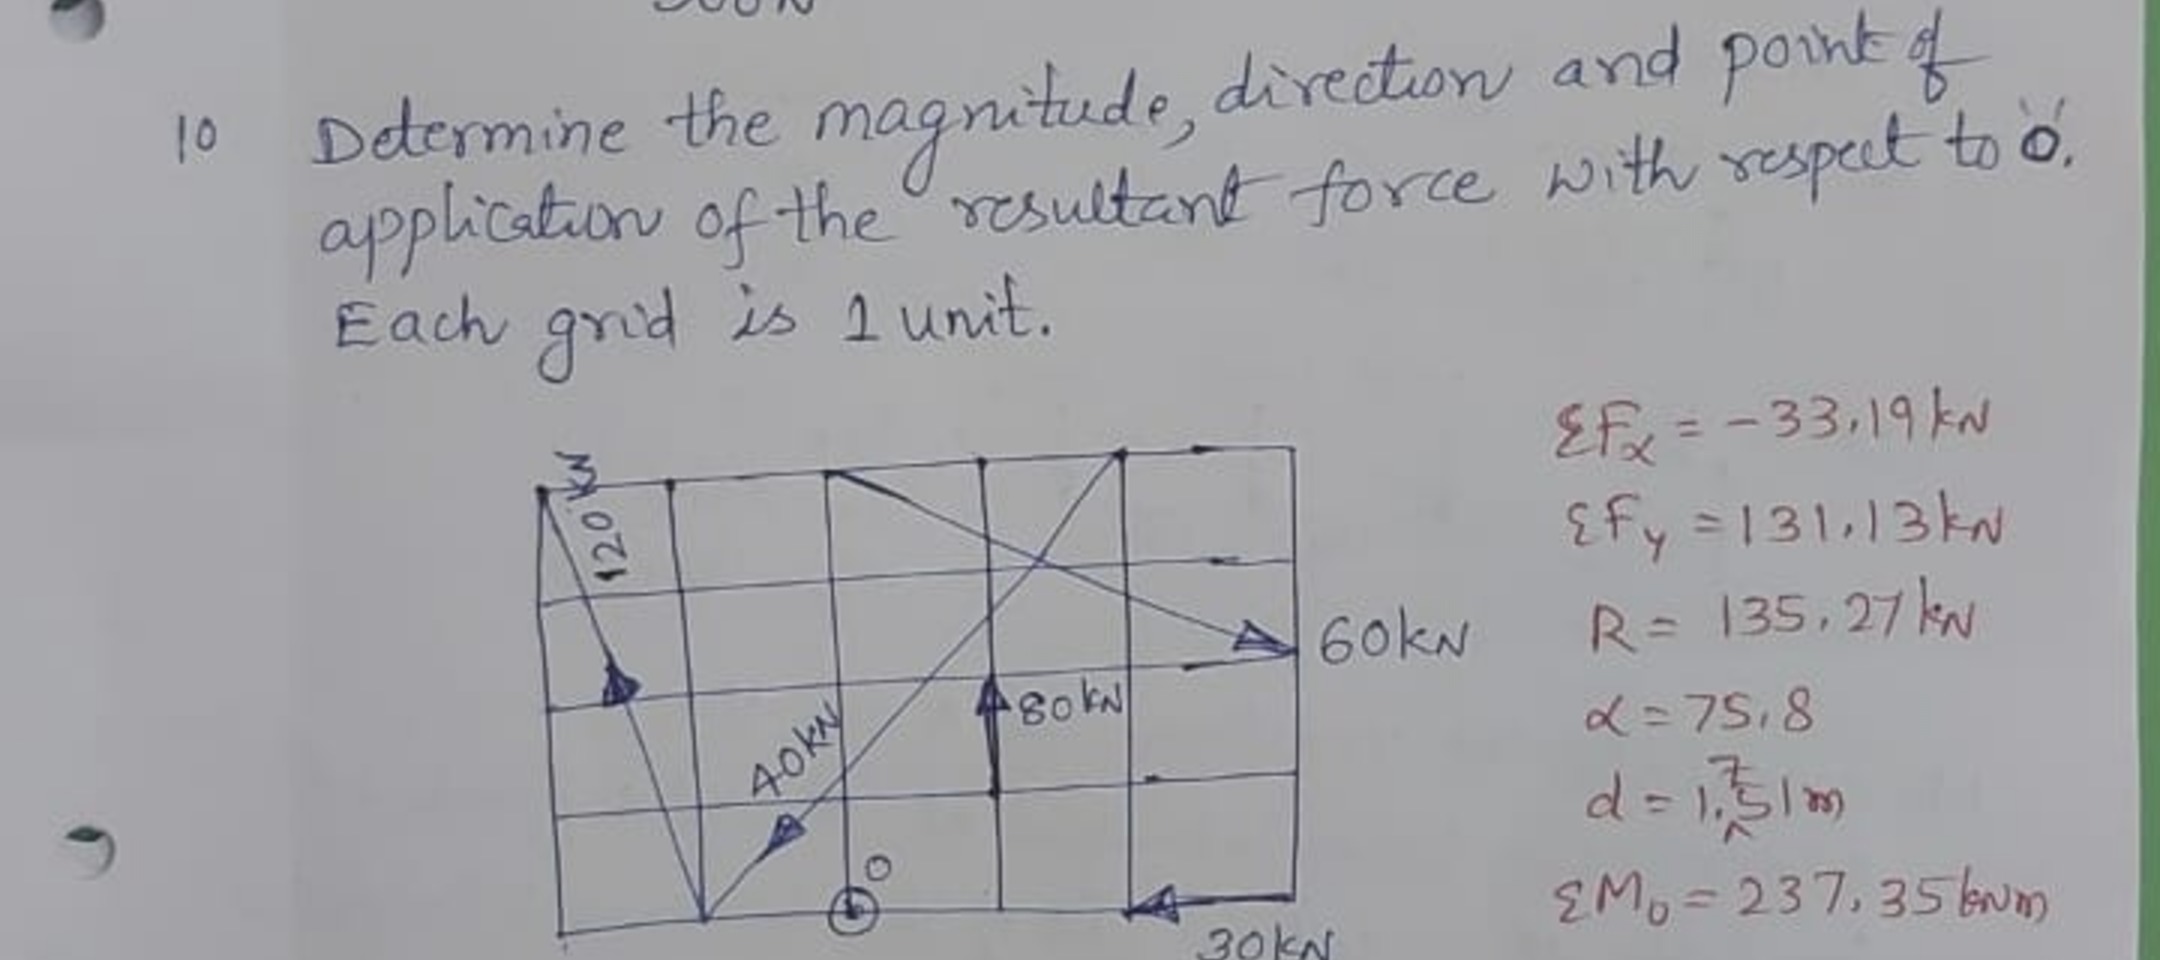 10 Determine the magnitude, direction and point of
application of the resultant force with respect to "O".
Each grid is 1 unit.
120 kN
60kN
80kN
40kN
O
30kN
ΣFx = -33.19 kN
ΣFy = 131.13 kN
R = 135.27 kN
α = 75.8
d = 1.751m
ΣMo = 237.35 kNm